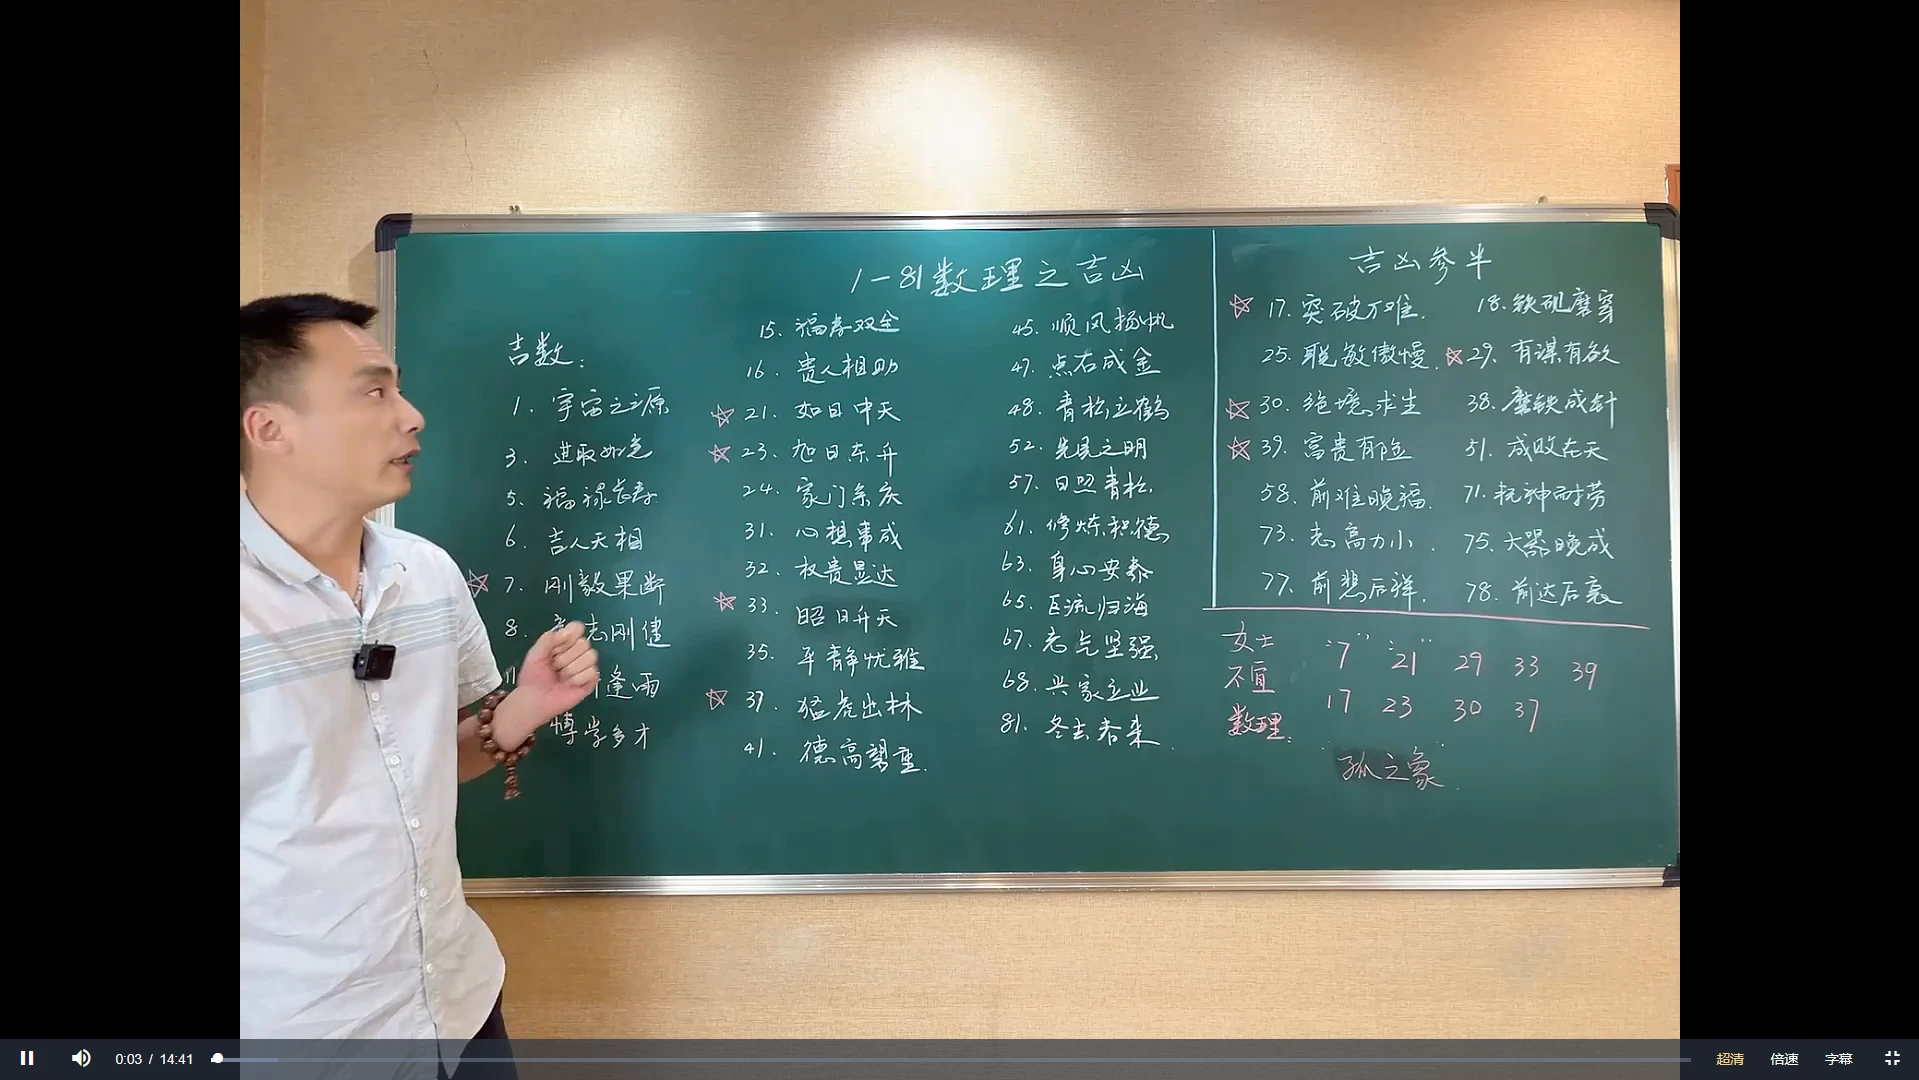 1-81数理之吉凶
吉数:
1. 宇宙之源
3. 进取如意
5. 福禄长寿
6. 吉人天相
7. 刚毅果断
8. 志刚健
11. 逢雨
博学多才
15. 福寿双全
16. 贵人相助
21. 如日中天
23. 旭日东升
24. 家门余庆
31. 心想事成
32. 权贵显达
33. 昭日升天
35. 平静优雅
37. 猛虎出林
41. 德高望重.
45. 顺风扬帆
47. 点石成金
48. 青松立鹤
52. 先见之明
57. 日照青松.
61. 修炼积德
63. 身心安泰
65. 巨流归海
67. 志气坚强
68. 兴家立业
81. 冬去春来.
吉凶参半
17. 突破万难. 18. 铁砚磨穿
25. 聪敏傲慢. 29. 有谋有欲
30. 绝境求生 38. 磨铁成针
39. 富贵有险 51. 成败在天
58. 前难晚福. 71. 耗神耐劳
73. 志高力小. 75. 大器晚成
77. 前悲后祥. 78. 前达后衰
女士不宜数理:
"7" "21" 29 33 39
17 23 30 37
孤之象.
0:03 / 14:41
超清 倍速 字幕